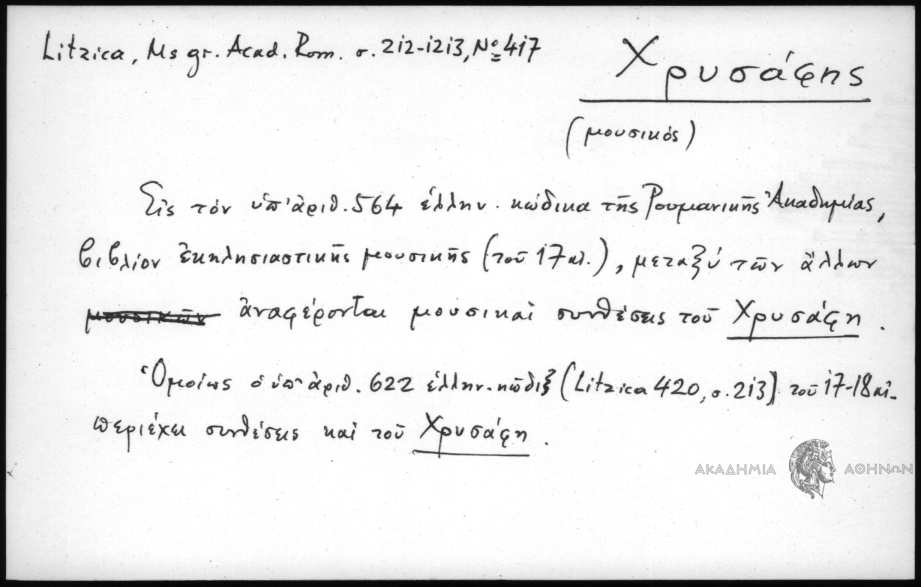 Litzica, Ms gr. Acad. Rom. σ. 212-1213, Nº 417
Χρυσάφης
(μουσικός)
Εἰς τὸν ὑπ' ἀριθ. 564 ἑλλην. κώδικα τῆς Ρουμανικῆς Ἀκαδημίας,
βιβλίον ἐκκλησιαστικῆς μουσικῆς (τοῦ 17 αἰ.), μεταξὺ τῶν ἄλλων
ἀναφέρονται μουσικαὶ συνθέσεις τοῦ Χρυσάφη.
Ὁμοίως ὁ ὑπ' ἀριθ. 622 ἑλλην. κῶδιξ (Litzica 420, σ. 213) τοῦ 17-18 αἰ.
περιέχει συνθέσεις καὶ τοῦ Χρυσάφη.
ΑΚΑΔΗΜΙΑ ΑΘΗΝΩΝ